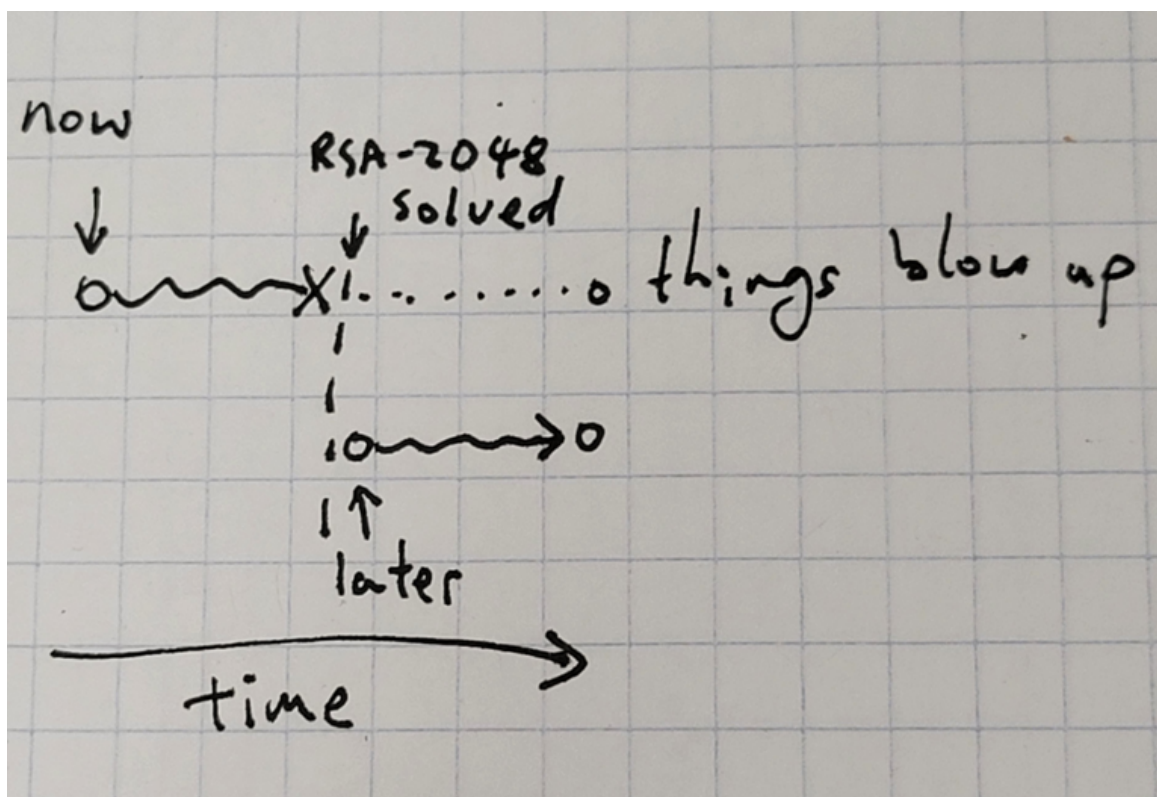 now
RSA-2048
solved
things blow up
later
time